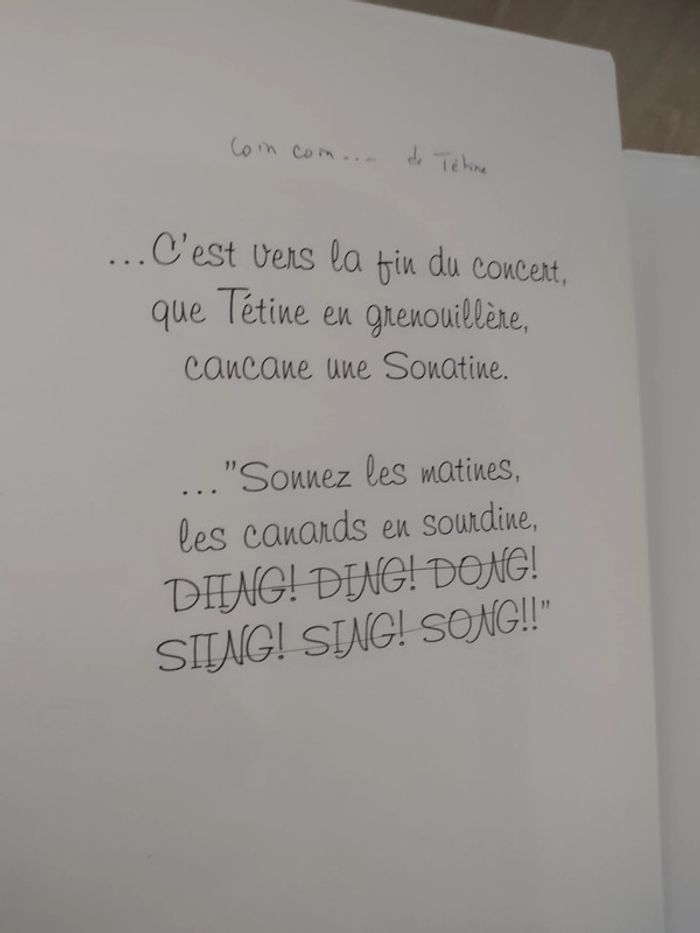 Coin coin... de Tétine
...C'est vers la fin du concert,
que Tétine en grenouillère,
cancane une Sonatine.
..."Sonnez les matines,
les canards en sourdine,
DIING! DING! DONG!
SIING! SING! SONG!!"